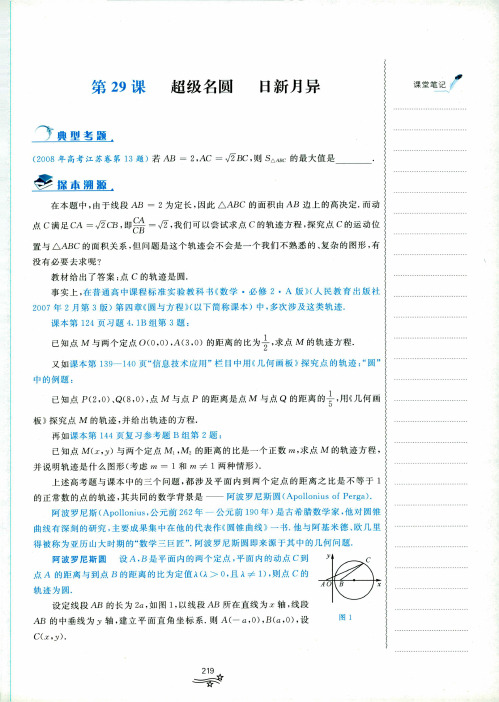 第 29 课 超级名圆 日新月异
课堂笔记
典型考题
(2008 年高考江苏卷第 13 题) 若 AB = 2, AC = √2 BC, 则 S△ABC 的最大值是______.
探本溯源
在本题中,由于线段 AB = 2 为定长,因此 △ABC 的面积由 AB 边上的高决定.而动
点 C 满足 CA = √2 CB,即 CA/CB = √2,我们可以尝试求点 C 的轨迹方程,探究点 C 的运动位
置与 △ABC 的面积关系,但问题是这个轨迹会不会是一个我们不熟悉的、复杂的图形,有
没有必要去求呢?
教材给出了答案:点 C 的轨迹是圆.
事实上,在普通高中课程标准实验教科书《数学·必修 2·A 版》(人民教育出版社
2007 年 2 月第 3 版)第四章《圆与方程》(以下简称课本)中,多次涉及这类轨迹.
课本第 124 页习题 4.1B 组第 3 题:
已知点 M 与两个定点 O(0,0),A(3,0) 的距离的比为 1/2,求点 M 的轨迹方程.
又如课本第 139—140 页“信息技术应用”栏目中用《几何画板》探究点的轨迹:“圆”
中的例题:
已知点 P(2,0)、Q(8,0),点 M 与点 P 的距离是点 M 与点 Q 的距离的 1/5,用《几何画
板》探究点 M 的轨迹,并给出轨迹的方程.
再如课本第 144 页复习参考题 B 组第 2 题:
已知点 M(x,y) 与两个定点 M₁,M₂ 的距离的比是一个正数 m,求点 M 的轨迹方程,
并说明轨迹是什么图形(考虑 m = 1 和 m ≠ 1 两种情形).
上述高考题与课本中的三个问题,都涉及平面内到两个定点的距离之比是不等于 1
的正常数的点的轨迹,其共同的数学背景是 —— 阿波罗尼斯圆(Apollonius of Perga).
阿波罗尼斯(Apollonius,公元前 262 年 — 公元前 190 年)是古希腊数学家,他对圆锥
曲线有深刻的研究,主要成果集中在他的代表作《圆锥曲线》一书.他与阿基米德、欧几里
得被称为亚历山大时期的“数学三巨匠”.阿波罗尼斯圆即来源于其中的几何问题.
阿波罗尼斯圆 设 A,B 是平面内的两个定点,平面内的动点 C 到
点 A 的距离与到点 B 的距离的比为定值 λ(λ > 0,且 λ ≠ 1),则点 C 的
轨迹为圆.
设定线段 AB 的长为 2a,如图 1,以线段 AB 所在直线为 x 轴,线段
AB 的中垂线为 y 轴,建立平面直角坐标系.则 A(− a,0),B(a,0),设
C(x,y).
y C
A O B x
图 1
219